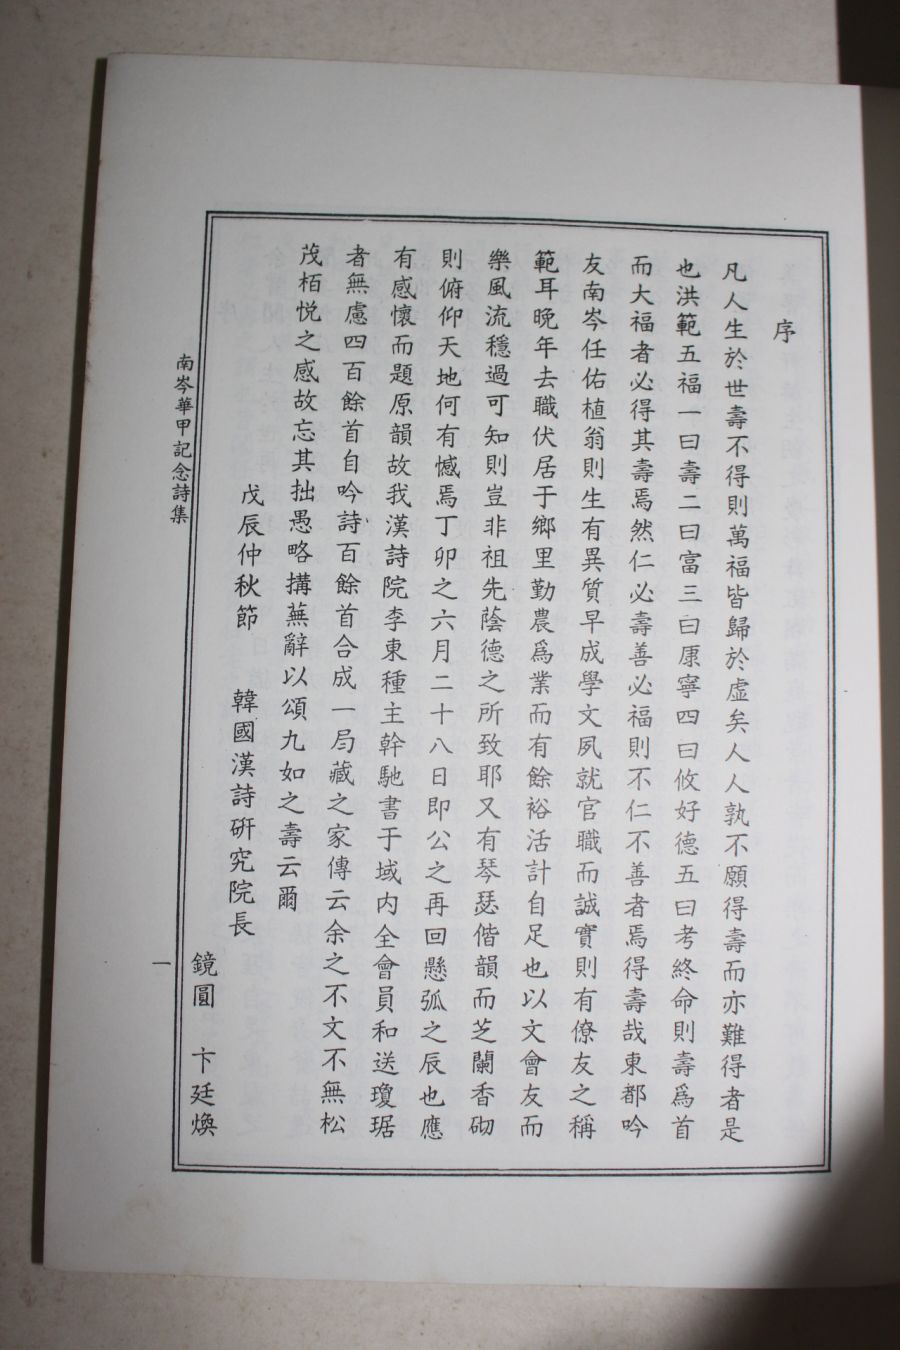 序
凡人生於世壽不得則萬福皆歸於虛矣人人孰不願得壽而亦難得者是
也洪範五福一曰壽二曰富三曰康寧四曰攸好德五曰考終命則壽爲首
而大福者必得其壽焉然仁必壽善必福則不仁不善者焉得壽哉東都吟
友南岑任佑植翁則生有異質早成學文夙就官職而誠實則有僚友之稱
範耳晚年去職伏居于鄉里勤農爲業而有餘裕活計自足也以文會友而
樂風流穩過可知則豈非祖先蔭德之所致耶又有琴瑟偕韻而芝蘭香砌
則俯仰天地何有憾焉丁卯之六月二十八日即公之再回懸弧之辰也應
有感懷而題原韻故我漢詩院李東種主幹馳書于域内全會員和送瓊琚
者無慮四百餘首自吟詩百餘首合成一局藏之家傳云余之不文不無松
茂栢悦之感故忘其拙愚略搆蕪辭以頌九如之壽云爾
戊辰仲秋節　韓國漢詩硏究院長
鏡圓　卞廷煥
南岑華甲記念詩集
一